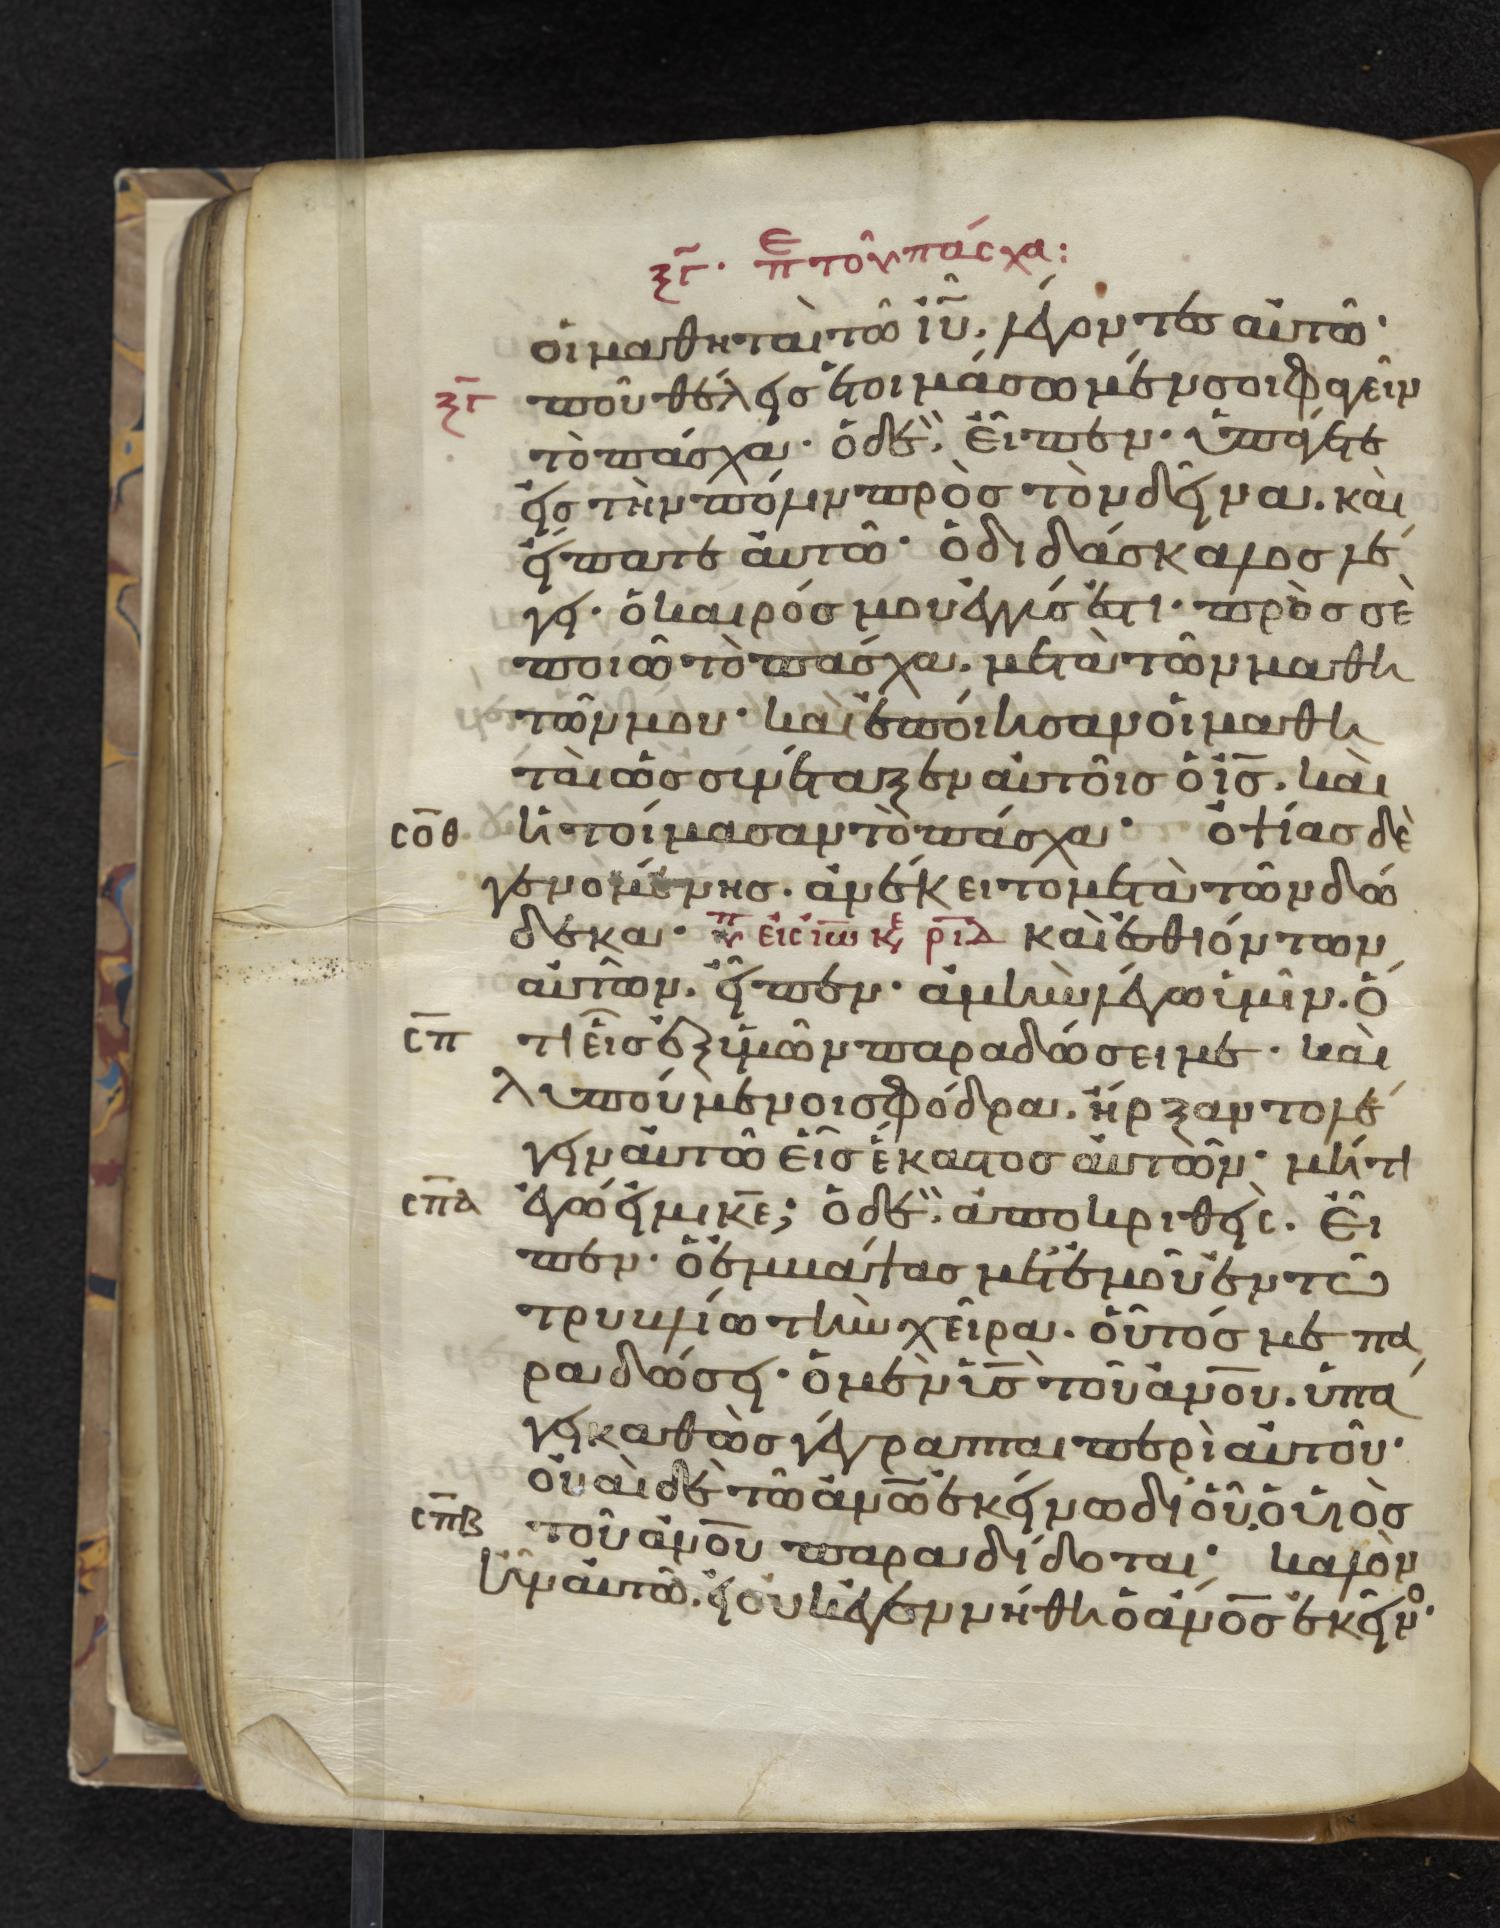 ξγ̃. ε̅π τοῦ πάσχα:
οἱ μαθηταὶ τῶ ἰῦ. λέγοντες αὐτῶ·
ξγ̅ ποῦ θέλεις ἑτοιμάσωμέν σοι φαγεῖν
τὸ πάσχα· ὁ δὲ, εἶπεν· ὑπάγετε
εἰς τὴν πόλιν πρὸς τὸν δεῖνα. καὶ
εἴπατε αὐτῶ· ὁ διδάσκαλος λέ
γει· ὁ καιρός μου ἐγγύς ἐστι· πρὸς σὲ
ποιῶ τὸ πάσχα. μετὰ τῶν μαθη
τῶν μου· καὶ ἐποίησαν οἱ μαθη
ταὶ ὡς συνέταξεν αὐτοῖς ὁ ἰ̅ς̅. καὶ
σο̅θ ἡτοίμασαν τὸ πάσχα· ὀψίας δὲ
γενομένης. ἀνέκειτο μετὰ τῶν δώ
δεκα· εἰς ἰω κε ρ̅ι̅δ καὶ ἐσθιόντων
αὐτῶν. εἶπεν· ἀμὴν λέγω ὑμῖν. ὅ
σ̅π τι εἷς ἐξ ὑμῶν παραδώσει με· καὶ
λυπούμενοι σφόδρα. ἤρξαντο λέ
γειν αὐτῶ εἷς ἕκαστος αὐτῶν· μήτι
σ̅π̅α ἐγώ εἰμι κ̅ε; ὁ δὲ, ἀποκριθεὶς. εἶ
πεν· ὁ ἐμβάψας μετ ἐμοῦ ἐν τῶ
τρυβλίω τὴν χεῖρα. οὗτός με πα
ραδώσει· ὁ μὲν ὑ̅ς̅ τοῦ ἀν̅ο̅υ. ὑπά
γει καθὼς γέγραπται περὶ αὐτοῦ·
οὐαὶ δὲ τῶ ἀν̅ω̅ ἐκείνω δι οὗ ὁ υἱὸς
σ̅π̅β τοῦ ἀν̅ο̅υ παραδίδοται· καλὸν
ἦν αὐτῶ. εἰ οὐκ ἐγεννήθη ὁ ἀν̅ο̅ς ἐκεῖνο·